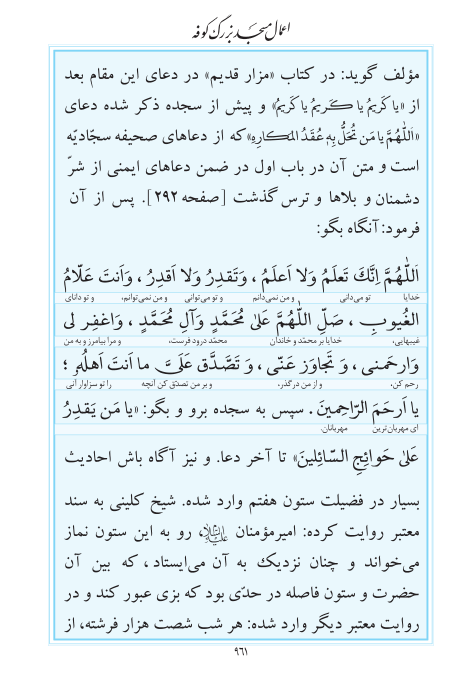 اعمال مسجد بزرگ کوفه
مؤلف گوید: در کتاب «مزار قدیم» در دعای این مقام بعد
از «یا کَریمُ یا کَریمُ یا کَریمُ» و پیش از سجده ذکر شده دعای
«اَللّٰهُمَّ یا مَن تُحَلُّ بِهِ عُقَدُ المَکارِهِ» که از دعاهای صحیفه سجّادیّه
است و متن آن در باب اول در ضمن دعاهای ایمنی از شرّ
دشمنان و بلاها و ترس گذشت [صفحه ۲۹۲]. پس از آن
فرمود: آنگاه بگو:
اَللّٰهُمَّ اِنَّكَ تَعلَمُ وَلا اَعلَمُ ، وَتَقدِرُ وَلا اَقدِرُ ، وَاَنتَ عَلّامُ
خدایا تو می‌دانی و من نمی‌دانم و تو می‌توانی و من نمی‌توانم، و تو دانای
الغُیوبِ ، صَلِّ اللّٰهُمَّ عَلیٰ مُحَمَّدٍ وَآلِ مُحَمَّدٍ ، وَاغفِر لی
غیبهایی، خدایا بر محمّد و خاندان محمّد درود فرست، و مرا بیامرز و به من
وَارحَمنی ، وَ تَجاوَز عَنّی ، وَ تَصَدَّق عَلَیَّ ما اَنتَ اَهلُهُ ؛
رحم کن، و از من درگذر، و بر من تصدّق کن آنچه را تو سزاوار آنی
یا اَرحَمَ الرّاحِمینَ. سپس به سجده برو و بگو: «یا مَن یَقدِرُ
ای مهربان‌ترین مهربانان.
عَلیٰ حَوائِجِ السّائِلینَ» تا آخر دعا. و نیز آگاه باش احادیث
بسیار در فضیلت ستون هفتم وارد شده. شیخ کلینی به سند
معتبر روایت کرده: امیرمؤمنان علیه‌السلام، رو به این ستون نماز
می‌خواند و چنان نزدیک به آن می‌ایستاد، که بین آن
حضرت و ستون فاصله در حدّی بود که بزی عبور کند و در
روایت معتبر دیگر وارد شده: هر شب شصت هزار فرشته، از
۹۶۱